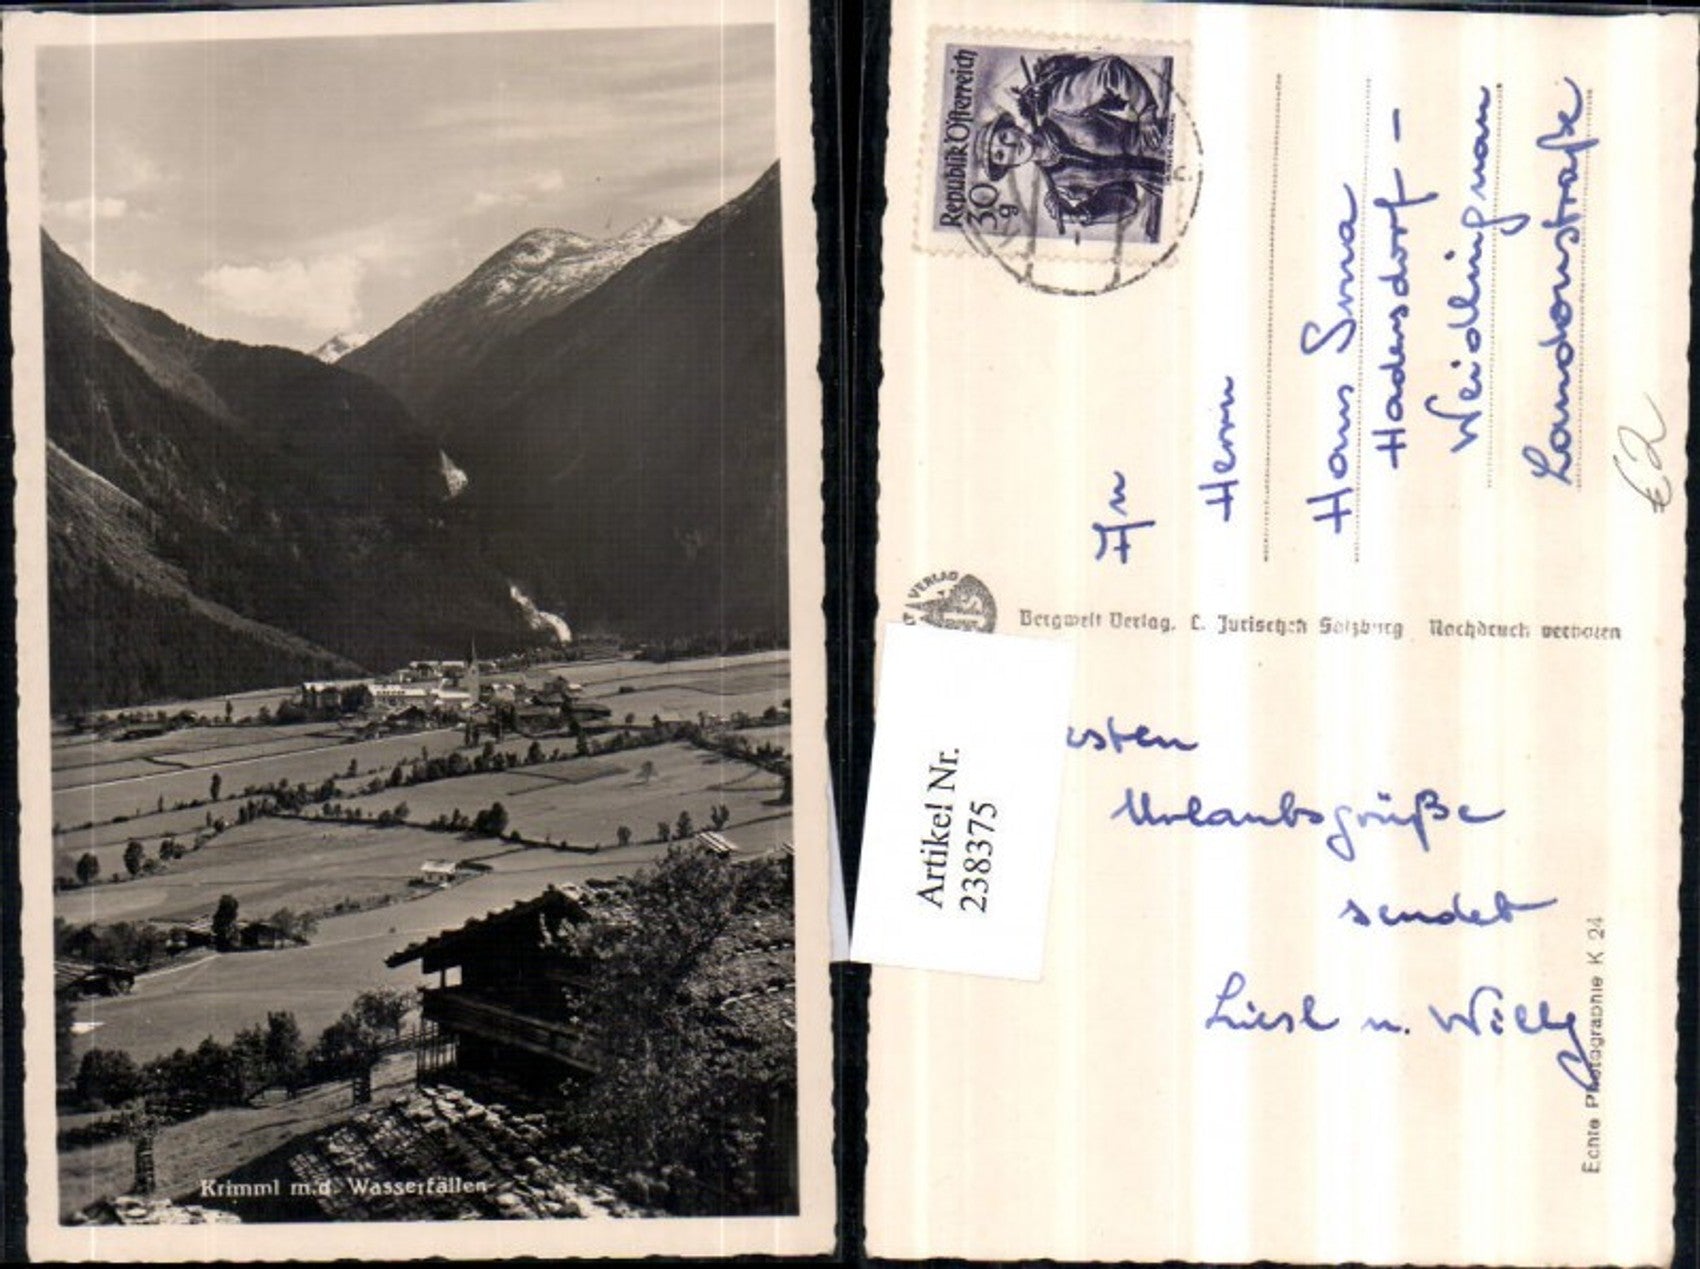 Krimml m.d. Wasserfällen
Republik Österreich
30
g
An
Herrn
Hans Srna
Hadersdorf -
Weidlingnau
Landonstraße
€2
VERLAG
Bergwelt Verlag. C. Jurischek Salzburg Nachdruck verboten
Artikel Nr.
238375
esten
Urlaubsgrüße
sendet
Liesl u. Willy
Echte Photographie K 24